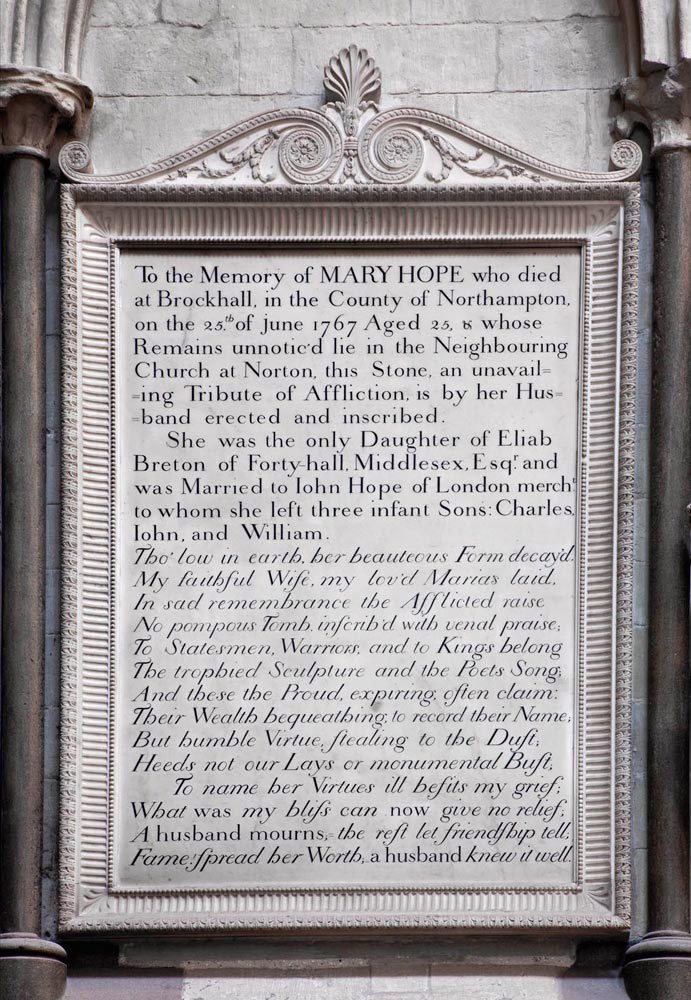 To the Memory of MARY HOPE who died
at Brockhall, in the County of Northampton,
on the 25.th of June 1767 Aged 25, & whose
Remains unnotic'd lie in the Neighbouring
Church at Norton, this Stone, an unavail=
=ing Tribute of Affliction, is by her Hus=
=band erected and inscribed.
She was the only Daughter of Eliab
Breton of Forty-hall, Middlesex, Esqr and
was Married to Iohn Hope of London mercht
to whom she left three infant Sons: Charles,
Iohn, and William.
Tho' low in earth, her beauteous Form decay'd,
My faithful Wife, my lov'd Maria's laid,
In sad remembrance the Afflicted raise
No pompous Tomb, inſcrib'd with venal praise;
To Statesmen, Warriors, and to Kings belong
The trophied Sculpture and the Poets Song;
And these the Proud, expiring, often claim:
Their Wealth bequeathing, to record their Name;
But humble Virtue, ſtealing to the Duſt,
Heeds not our Lays or monumental Buſt.
To name her Virtues ill befits my grief;
What was my bliſs can now give no relief;
A husband mourns,=the reſt let friendſhip tell,
Fame! ſpread her Worth, a husband knew it well.